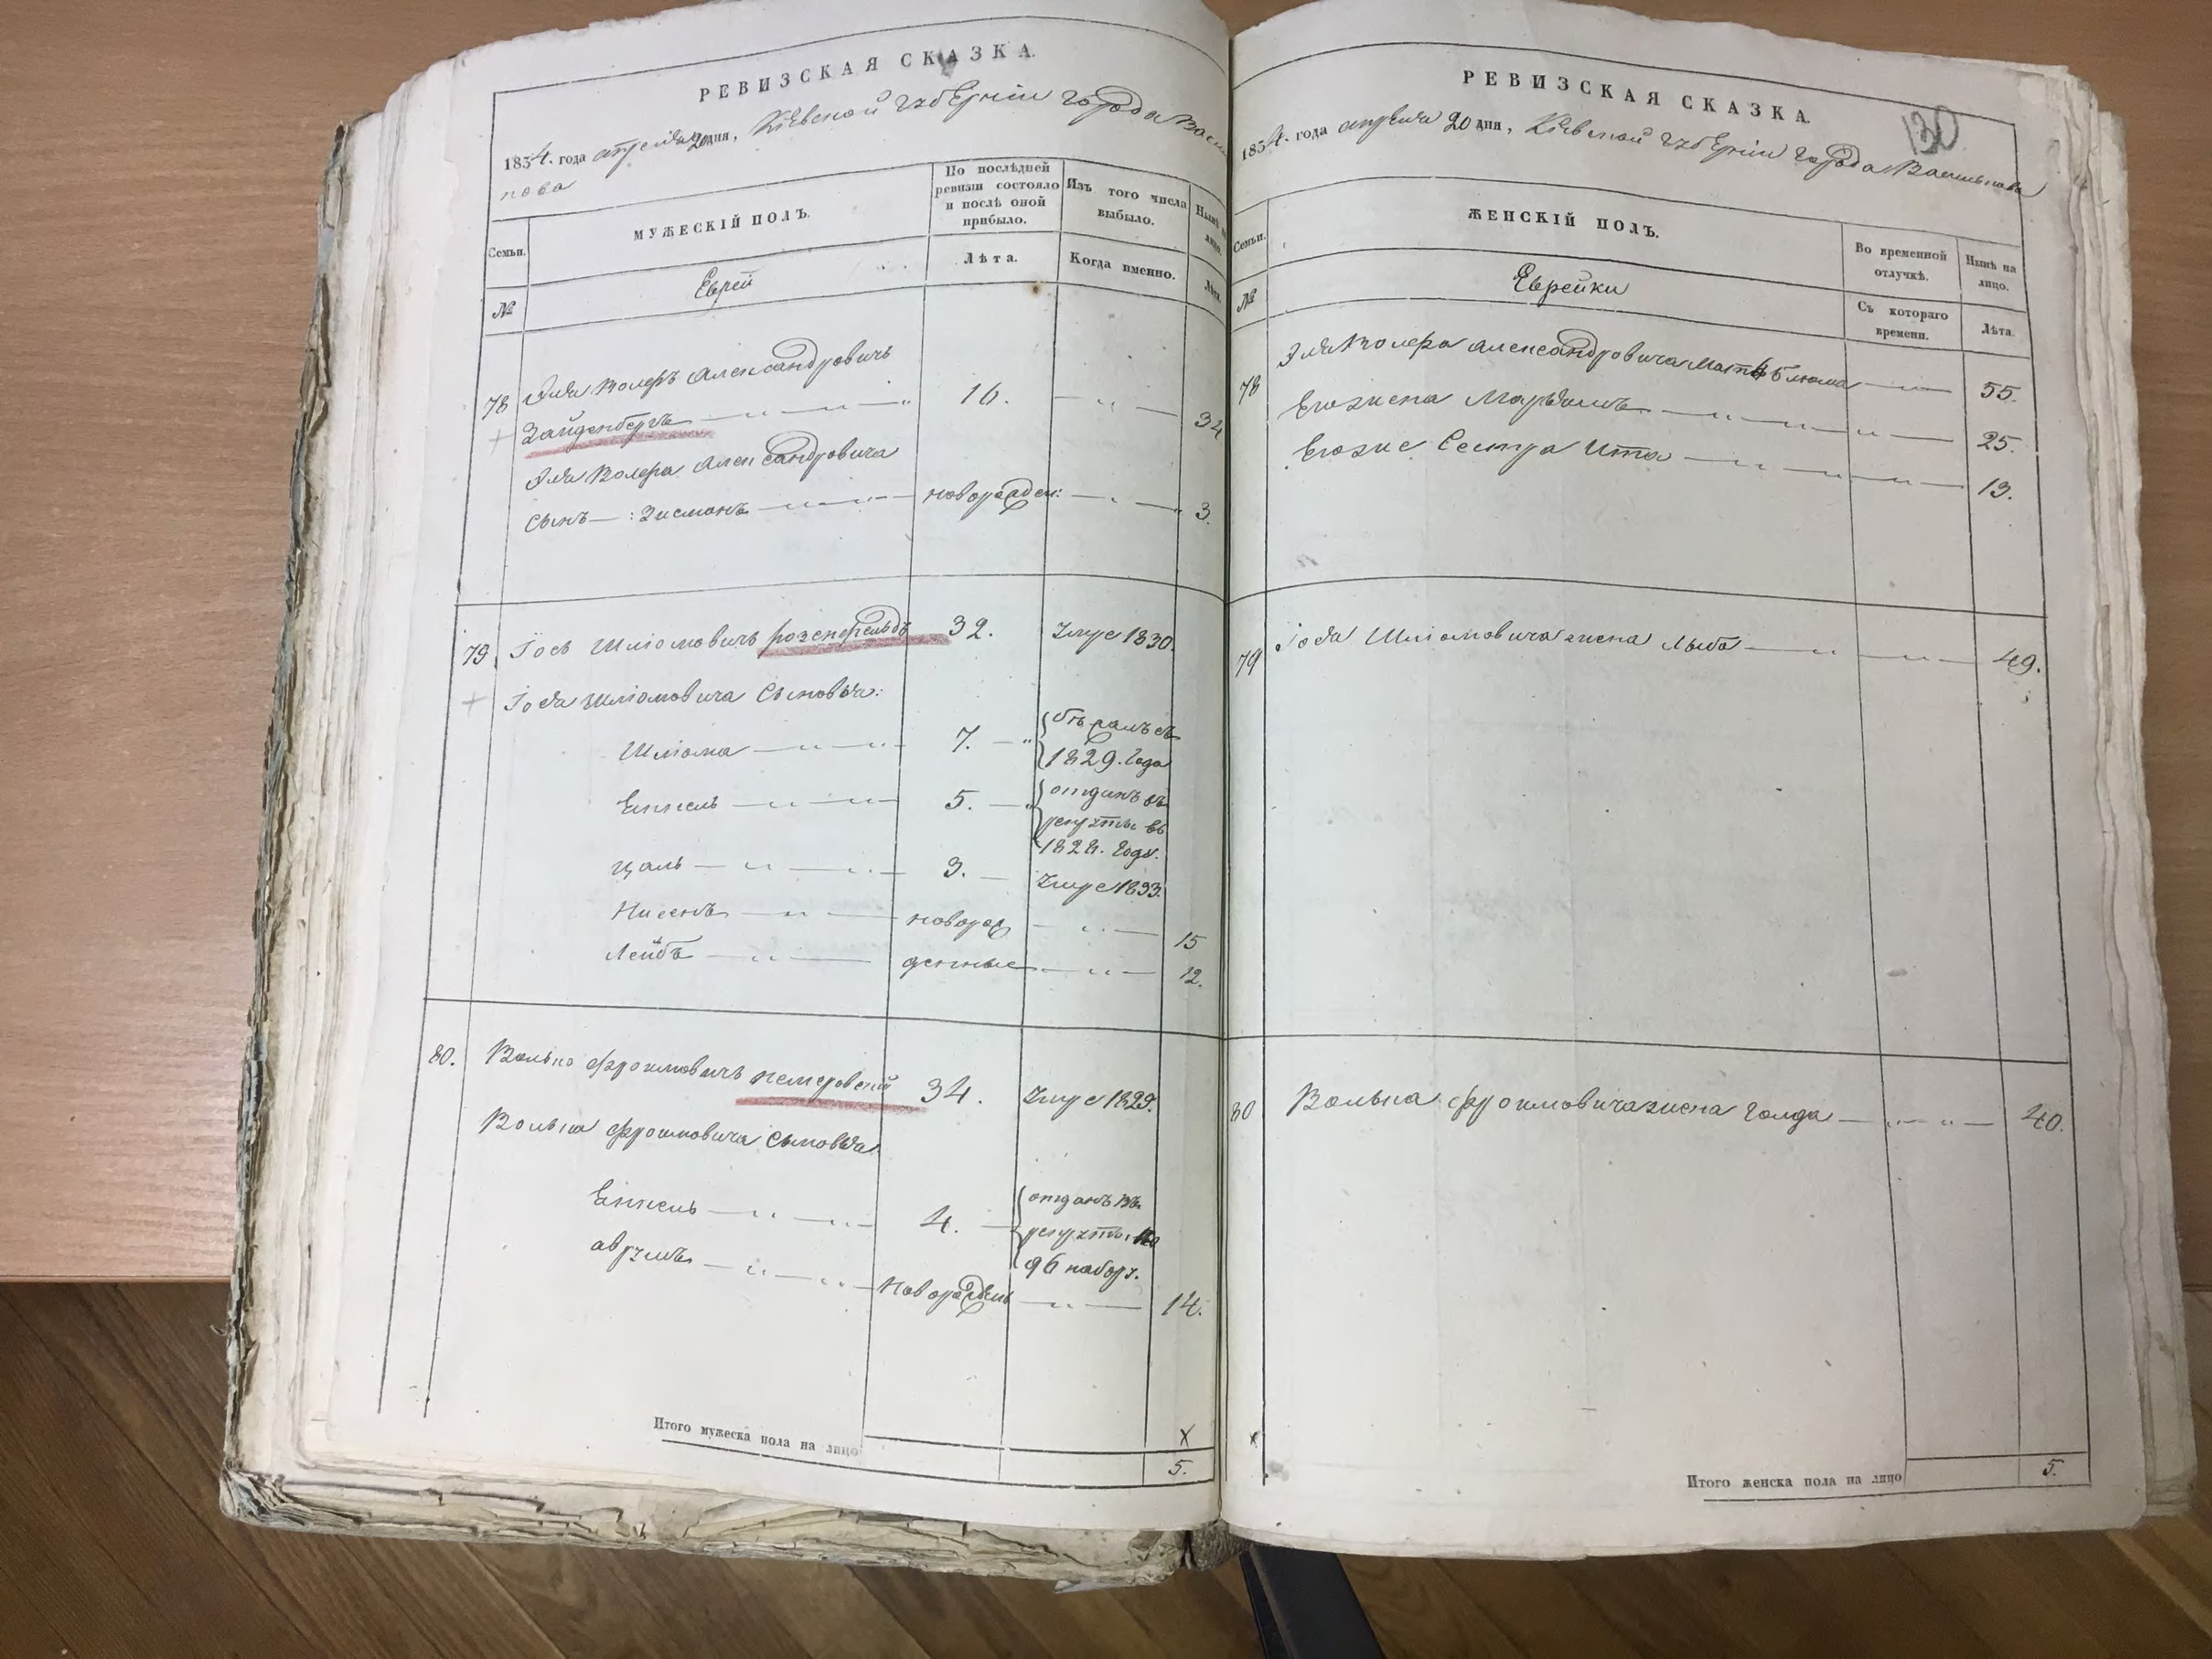 РЕВИЗСКАЯ СКАЗКА.
1834. года апреля 20 дня, Кіевской губерніи города Василь
кова
Семьи.
МУЖЕСКІЙ ПОЛЪ.
По послѣдней ревизіи состояло и послѣ оной прибыло.
Изъ того числа выбыло.
Нынѣ на лицо.
№
Еврей
Лѣта.
Когда именно.
Лѣта.
78 Эля Волфъ Александровичъ
Зайденбергъ 16. 34
Эля Волфа Александровича
сынъ: Зисманъ новорожден: 3.
79 Іосъ Шліомовичъ розенфельдъ 32. Змре 1830.
Іося Шліомовича сыновья:
Шліома 7. 1829. года
Еннель 5. отданъ въ
рекруты въ
1828. году.
Цаль 3. Змре 1833.
Нисенъ новорож 15
Лейбъ денные 12.
80. Волько Фроимовичъ немеровскій 34. Змре 1829.
Волька Фроимовича сыновья
Еннель 4. отданъ въ
рекруты
96 наборъ.
аврумъ новорожденъ 14.
Итого мужеска пола на лицо 5.
130
РЕВИЗСКАЯ СКАЗКА.
1834. года апреля 20 дня, Кіевской губерніи города Василькова
Семьи.
ЖЕНСКІЙ ПОЛЪ.
Во временной отлучкѣ.
Нынѣ на лицо.
№
Еврейки
Съ котораго времени.
Лѣта.
78 Эля Волфа Александровича мать блюма 55.
Его жена Марьямъ 25.
Его же Сестра Ита 13.
79 Іося Шліомовича жена Лыба 49.
80 Волька Фроимовича жена Голда 40.
Итого женска пола на лицо 5.